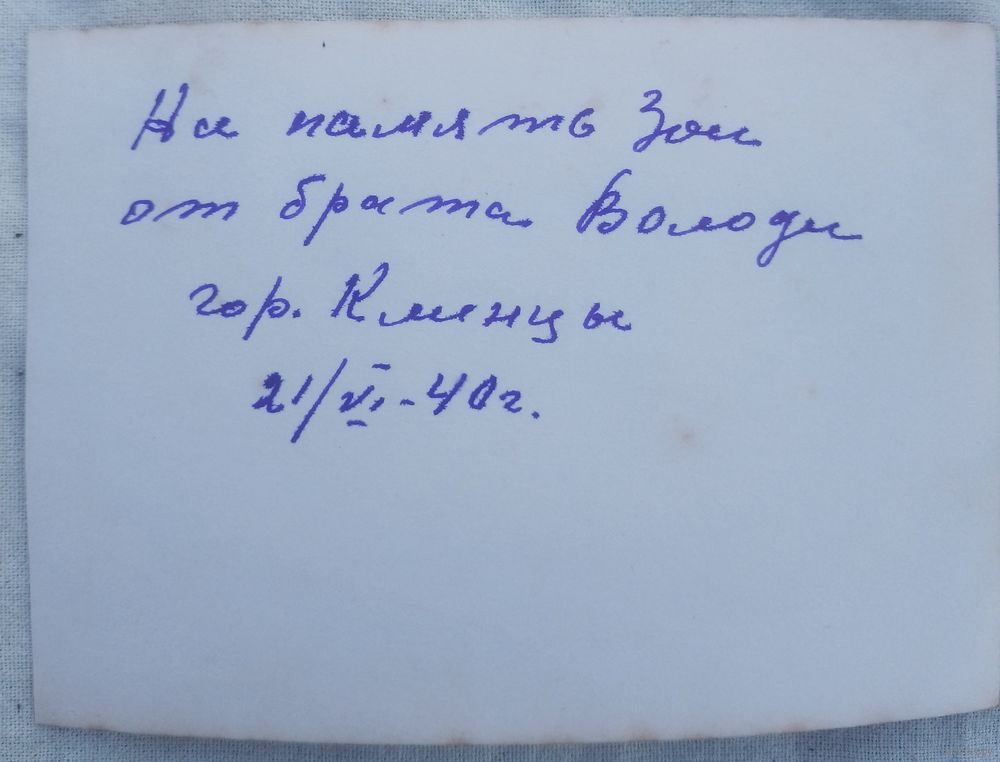 На память Зои
от брата Володи
гор. Клинцы
21/VI-40г.